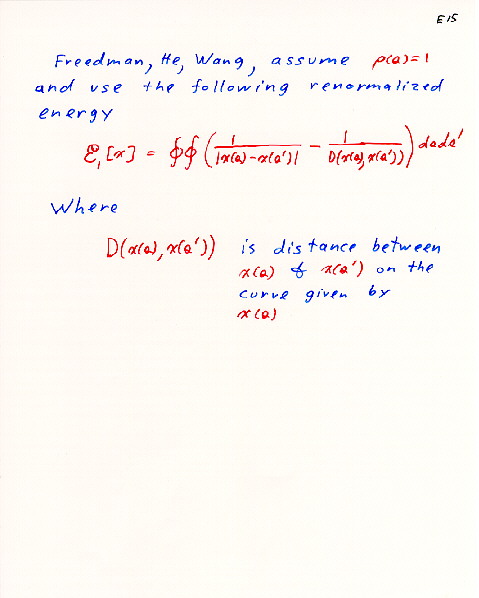 E15
Freedman, He, Wang, assume ρ(a)=1
and use the following renormalized
energy
ℰ₁[x] = ∮∮ (1/|x(a)-x(a')| - 1/D(x(a),x(a'))) da da'
Where
D(x(a), x(a')) is distance between
x(a) & x(a') on the
curve given by
x(a)